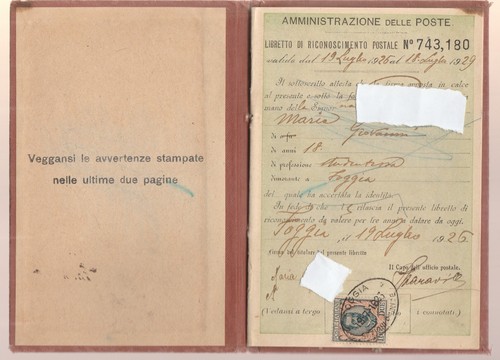 Veggansi le avvertenze stampate
nelle ultime due pagine
AMMINISTRAZIONE DELLE POSTE
LIBRETTO DI RICONOSCIMENTO POSTALE Nº 743,180
valido dal 19 Luglio 1926 al 18 Luglio 1929
Il sottoscritto attesta che la firma apposta in calce
al presente e sotto la
mano della Signor
Maria
di Giovanni
di anni 18
di professione studentessa
dimorante a Foggia
del quale ha accertata la identità.
In fede di che rilascia il presente libretto di
riconoscimento da valere per tre anni a datare da oggi.
Foggia, il 19 Luglio 1926
Firma del titolare del presente libretto
Maria
Il Capo dell'ufficio postale,
FOGGIA
(Vedansi a tergo i connotati)